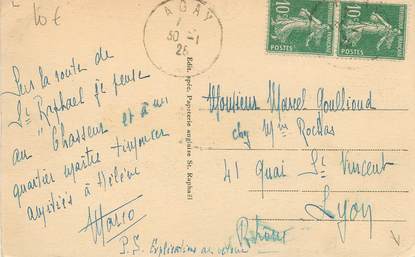 10 €
AGAY
30 -1
26
10c
POSTES
10c
POSTES
Sur la route de
St Raphael je pense
au Chasseur et à un
quartier maître
amitiés à Hélène
Marco
P.S. Explications au retour
Edit. spéc. Papeterie anglaise St. Raphaël
Monsieur Marcel
chez Mme Rochas
41 Quai St Vincent
Lyon
Rhône